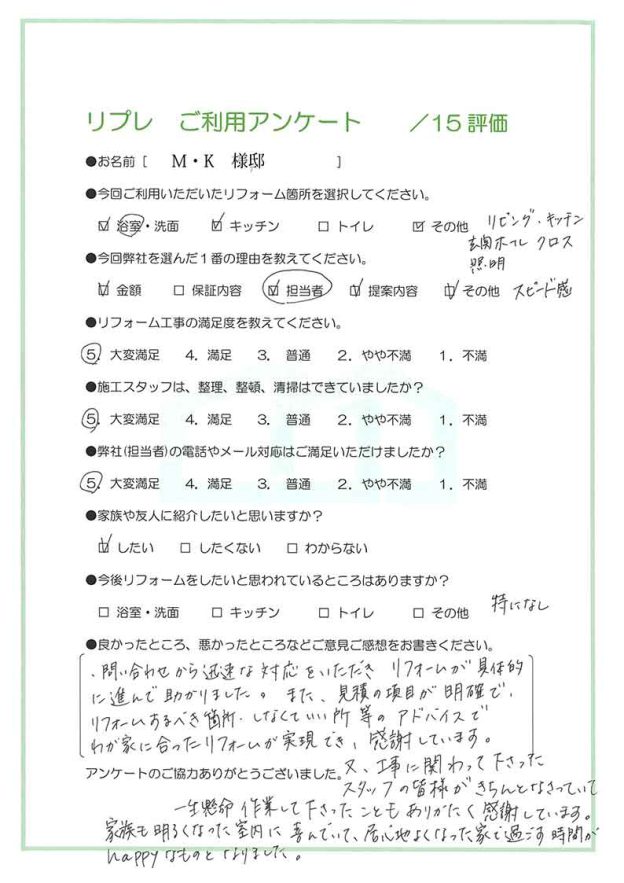 リプレ　ご利用アンケート　　／15評価
●お名前［　M・K　様邸　］
●今回ご利用いただいたリフォーム箇所を選択してください。
☑ 浴室・洗面　☑ キッチン　□ トイレ　☑ その他　リビング・キッチン
玄関ホール クロス
照明
●今回弊社を選んだ１番の理由を教えてください。
☑ 金額　□ 保証内容　☑ 担当者　☑ 提案内容　☑ その他　スピード感
●リフォーム工事の満足度を教えてください。
5．大変満足　4．満足　3．普通　2．やや不満　1．不満
●施工スタッフは、整理、整頓、清掃はできていましたか？
5．大変満足　4．満足　3．普通　2．やや不満　1．不満
●弊社(担当者)の電話やメール対応はご満足いただけましたか？
5．大変満足　4．満足　3．普通　2．やや不満　1．不満
●家族や友人に紹介したいと思いますか？
☑ したい　□ したくない　□ わからない
●今後リフォームをしたいと思われているところはありますか？
□ 浴室・洗面　□ キッチン　□ トイレ　□ その他　特になし
●良かったところ、悪かったところなどご意見ご感想をお書きください。
、問い合わせから迅速な対応をいただき リフォームが具体的
に進んで助かりました。また、見積の項目が明確で、
リフォームするべき箇所・しなくていい所等のアドバイスで
わが家に合ったリフォームが実現でき、感謝しています。
アンケートのご協力ありがとうございました。
又、工事に関わって下さった
スタッフの皆様がきちんとなさっていて
一生懸命作業して下さったこともありがたく感謝しています。
家族も明るくなった室内に喜んでいて、居心地よくなった家で過ごす時間が
happyなものとなりました。